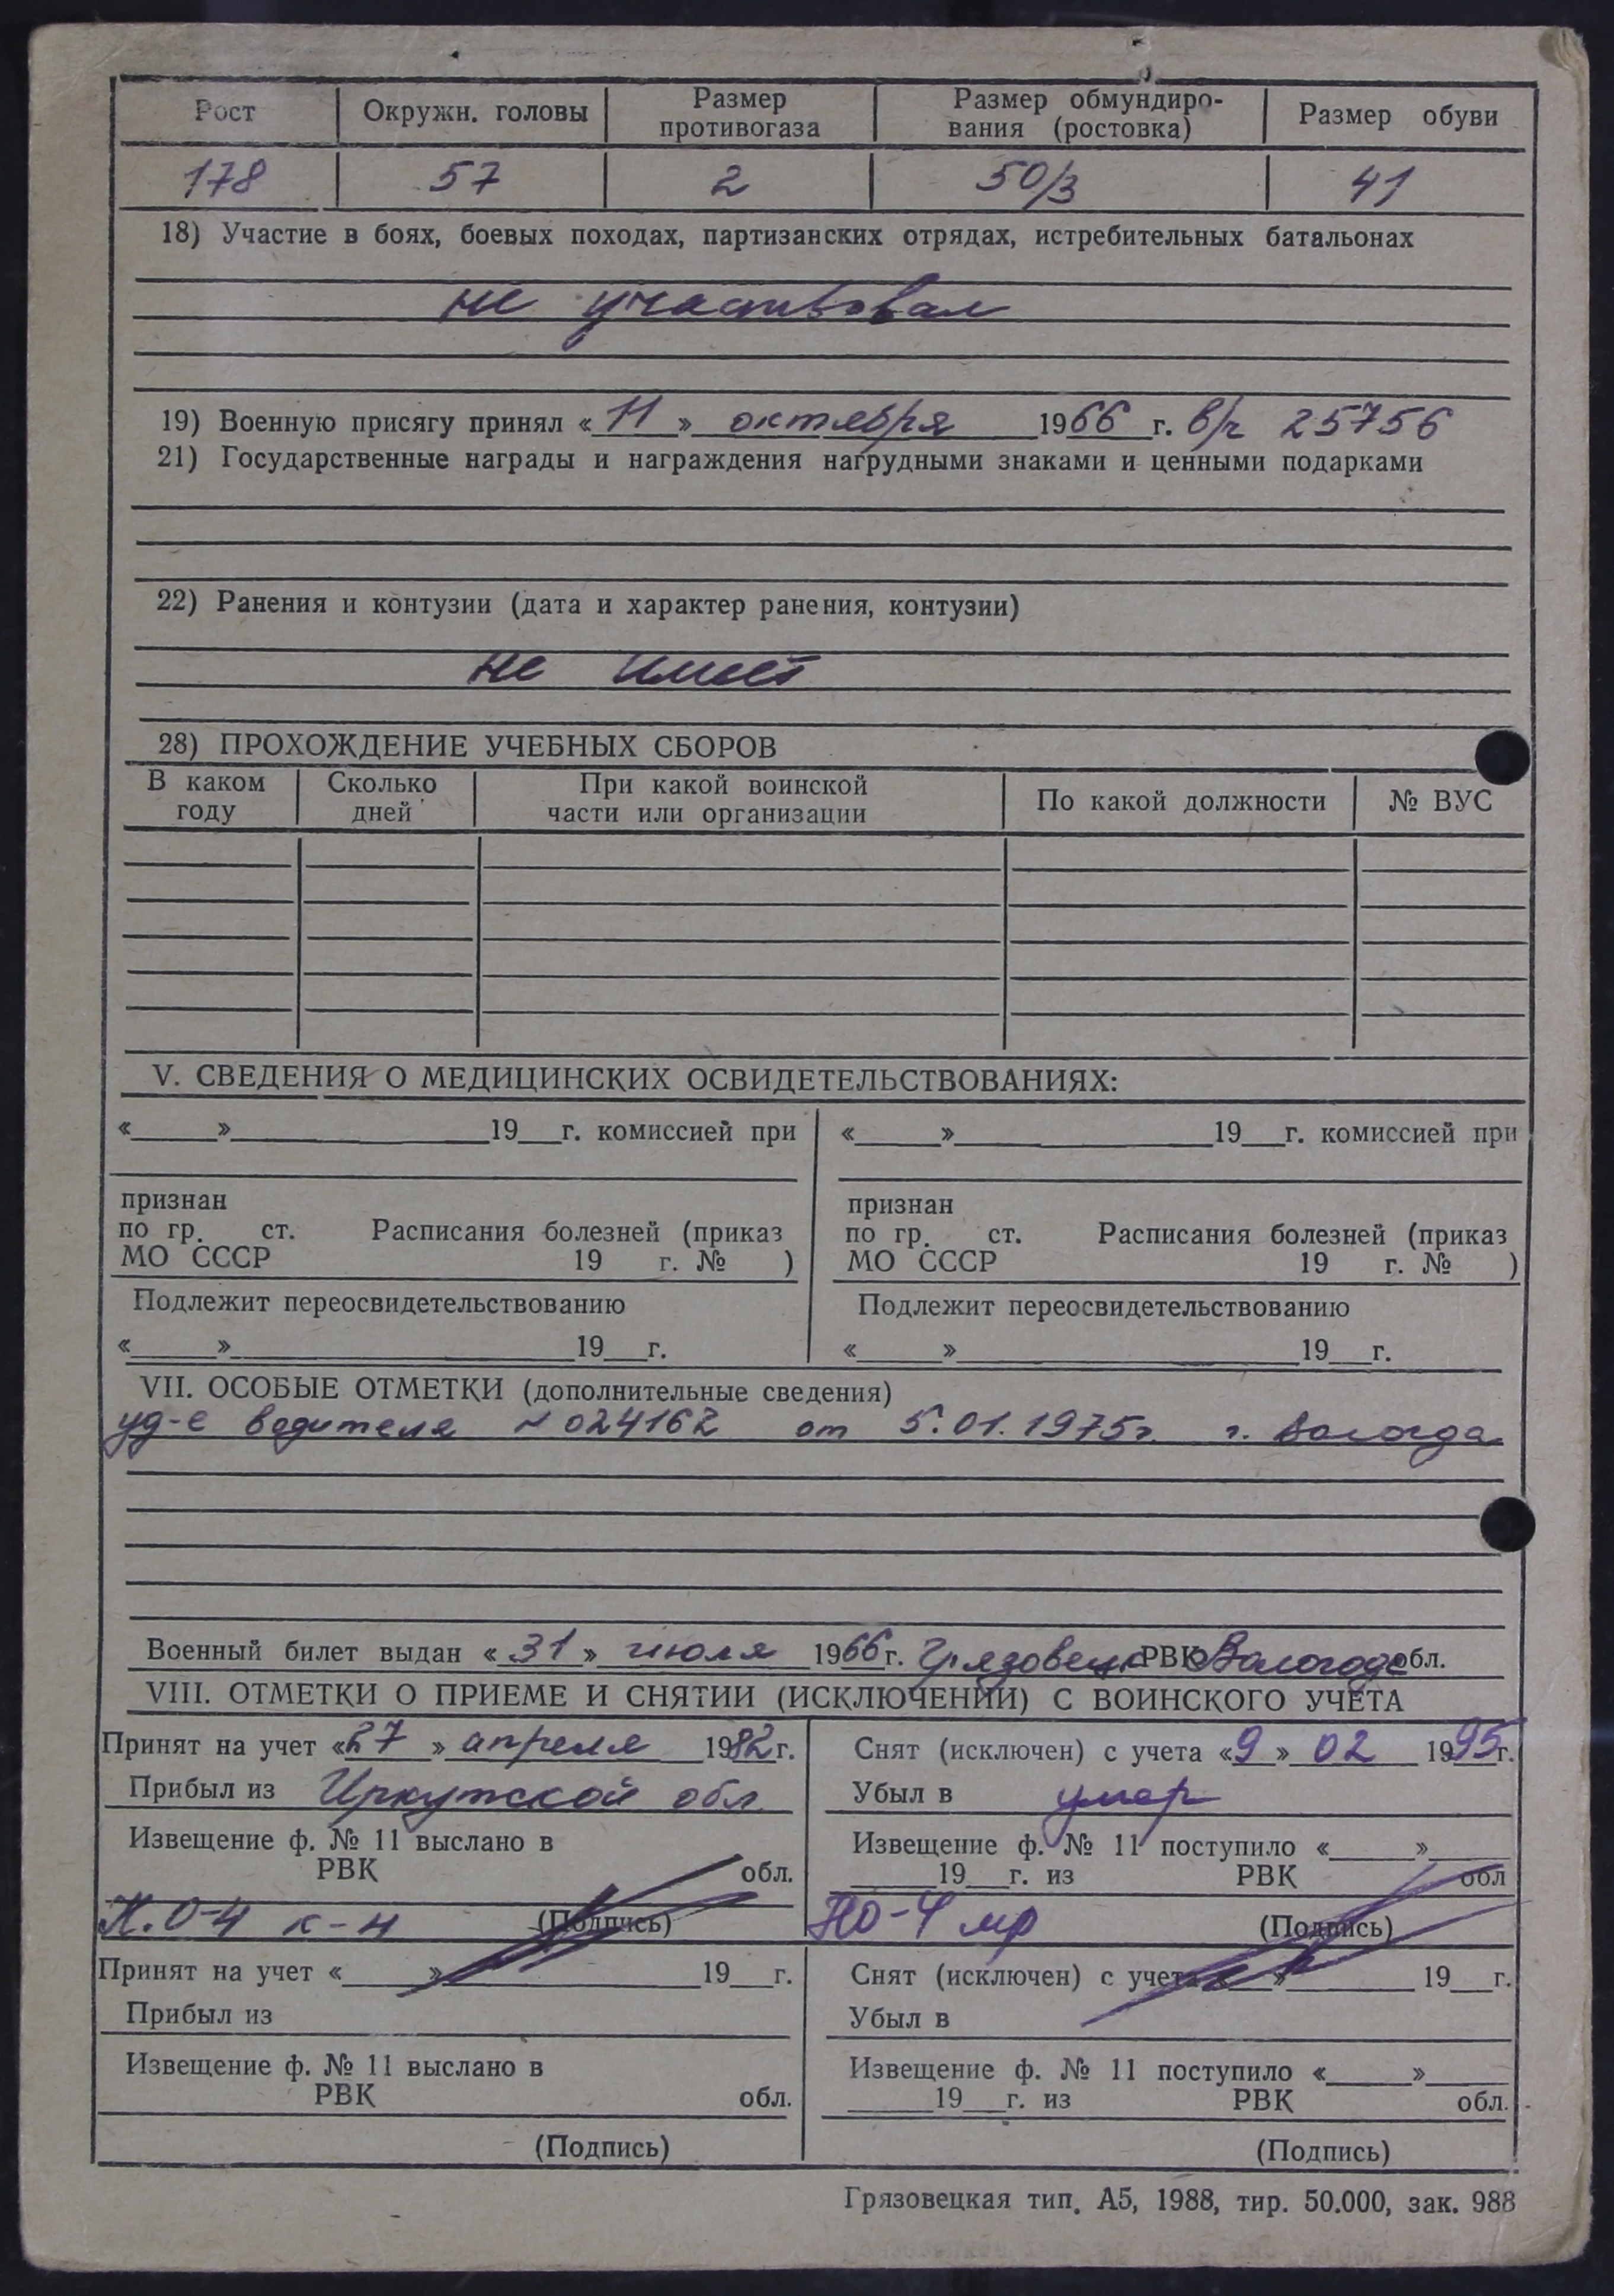 Рост Окружн. головы Размер противогаза Размер обмундиро-вания (ростовка) Размер обуви
178 57 2 50/3 41
18) Участие в боях, боевых походах, партизанских отрядах, истребительных батальонах
не участвовал
19) Военную присягу принял «11» октября 1966 г. в/ч 25756
21) Государственные награды и награждения нагрудными знаками и ценными подарками
22) Ранения и контузии (дата и характер ранения, контузии)
не имеет
28) ПРОХОЖДЕНИЕ УЧЕБНЫХ СБОРОВ
В каком году Сколько дней При какой воинской части или организации По какой должности № ВУС
V. СВЕДЕНИЯ О МЕДИЦИНСКИХ ОСВИДЕТЕЛЬСТВОВАНИЯХ:
«___»___19__г. комиссией при
признан
по гр. ст. Расписания болезней (приказ
МО СССР 19 г. № )
Подлежит переосвидетельствованию
«___»___19__г.
«___»___19__г. комиссией при
признан
по гр. ст. Расписания болезней (приказ
МО СССР 19 г. № )
Подлежит переосвидетельствованию
«___»___19__г.
VII. ОСОБЫЕ ОТМЕТКИ (дополнительные сведения)
уд-е водителя № 024162 от 5.01.1975г. г. Вологда
Военный билет выдан «31» июля 1966г. Грязовецк РВК Вологодс обл.
VIII. ОТМЕТКИ О ПРИЕМЕ И СНЯТИИ (ИСКЛЮЧЕНИИ) С ВОИНСКОГО УЧЕТА
Принят на учет «27» апреля 1982г.
Прибыл из Иркутской обл.
Извещение ф. № 11 выслано в
РВК обл.
Н.О-4 к-н (Подпись)
Снят (исключен) с учета «9» 02 1995г.
Убыл в умер
Извещение ф. № 11 поступило «___»___
___19__г. из РВК обл
НО-4 мр (Подпись)
Принят на учет «___»___19__г.
Прибыл из
Извещение ф. № 11 выслано в
РВК обл.
(Подпись)
Снят (исключен) с учета «___»___19__г.
Убыл в
Извещение ф. № 11 поступило «___»___
___19__г. из РВК обл.
(Подпись)
Грязовецкая тип. А5, 1988, тир. 50.000, зак. 988